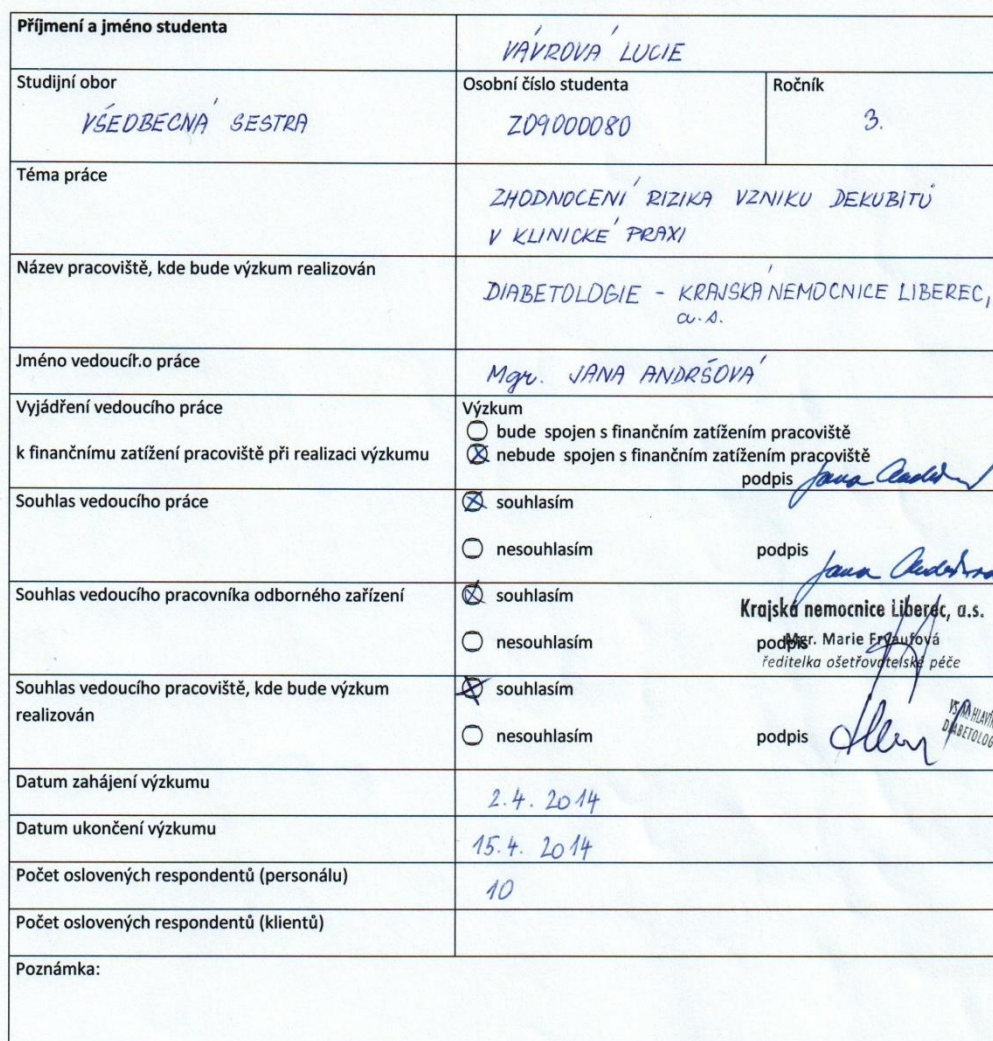 Příjmení a jméno studenta
VÁVROVÁ LUCIE
Studijní obor
VŠEOBECNÁ SESTRA
Osobní číslo studenta
Z09000080
Ročník
3.
Téma práce
ZHODNOCENÍ RIZIKA VZNIKU DEKUBITŮ
V KLINICKÉ PRAXI
Název pracoviště, kde bude výzkum realizován
DIABETOLOGIE - KRAJSKÁ NEMOCNICE LIBEREC,
a.s.
Jméno vedoucího práce
Mgr. JANA ANDRŠOVÁ
Vyjádření vedoucího práce
k finančnímu zatížení pracoviště při realizaci výzkumu
Výzkum
bude spojen s finančním zatížením pracoviště
nebude spojen s finančním zatížením pracoviště
podpis
Souhlas vedoucího práce
souhlasím
nesouhlasím podpis
Souhlas vedoucího pracovníka odborného zařízení
souhlasím
Krajská nemocnice Liberec, a.s.
nesouhlasím podpis
Mgr. Marie Fryaufová
ředitelka ošetřovatelské péče
Souhlas vedoucího pracoviště, kde bude výzkum
realizován
souhlasím
nesouhlasím podpis
Datum zahájení výzkumu
2.4. 2014
Datum ukončení výzkumu
15.4. 2014
Počet oslovených respondentů (personálu)
10
Počet oslovených respondentů (klientů)
Poznámka: